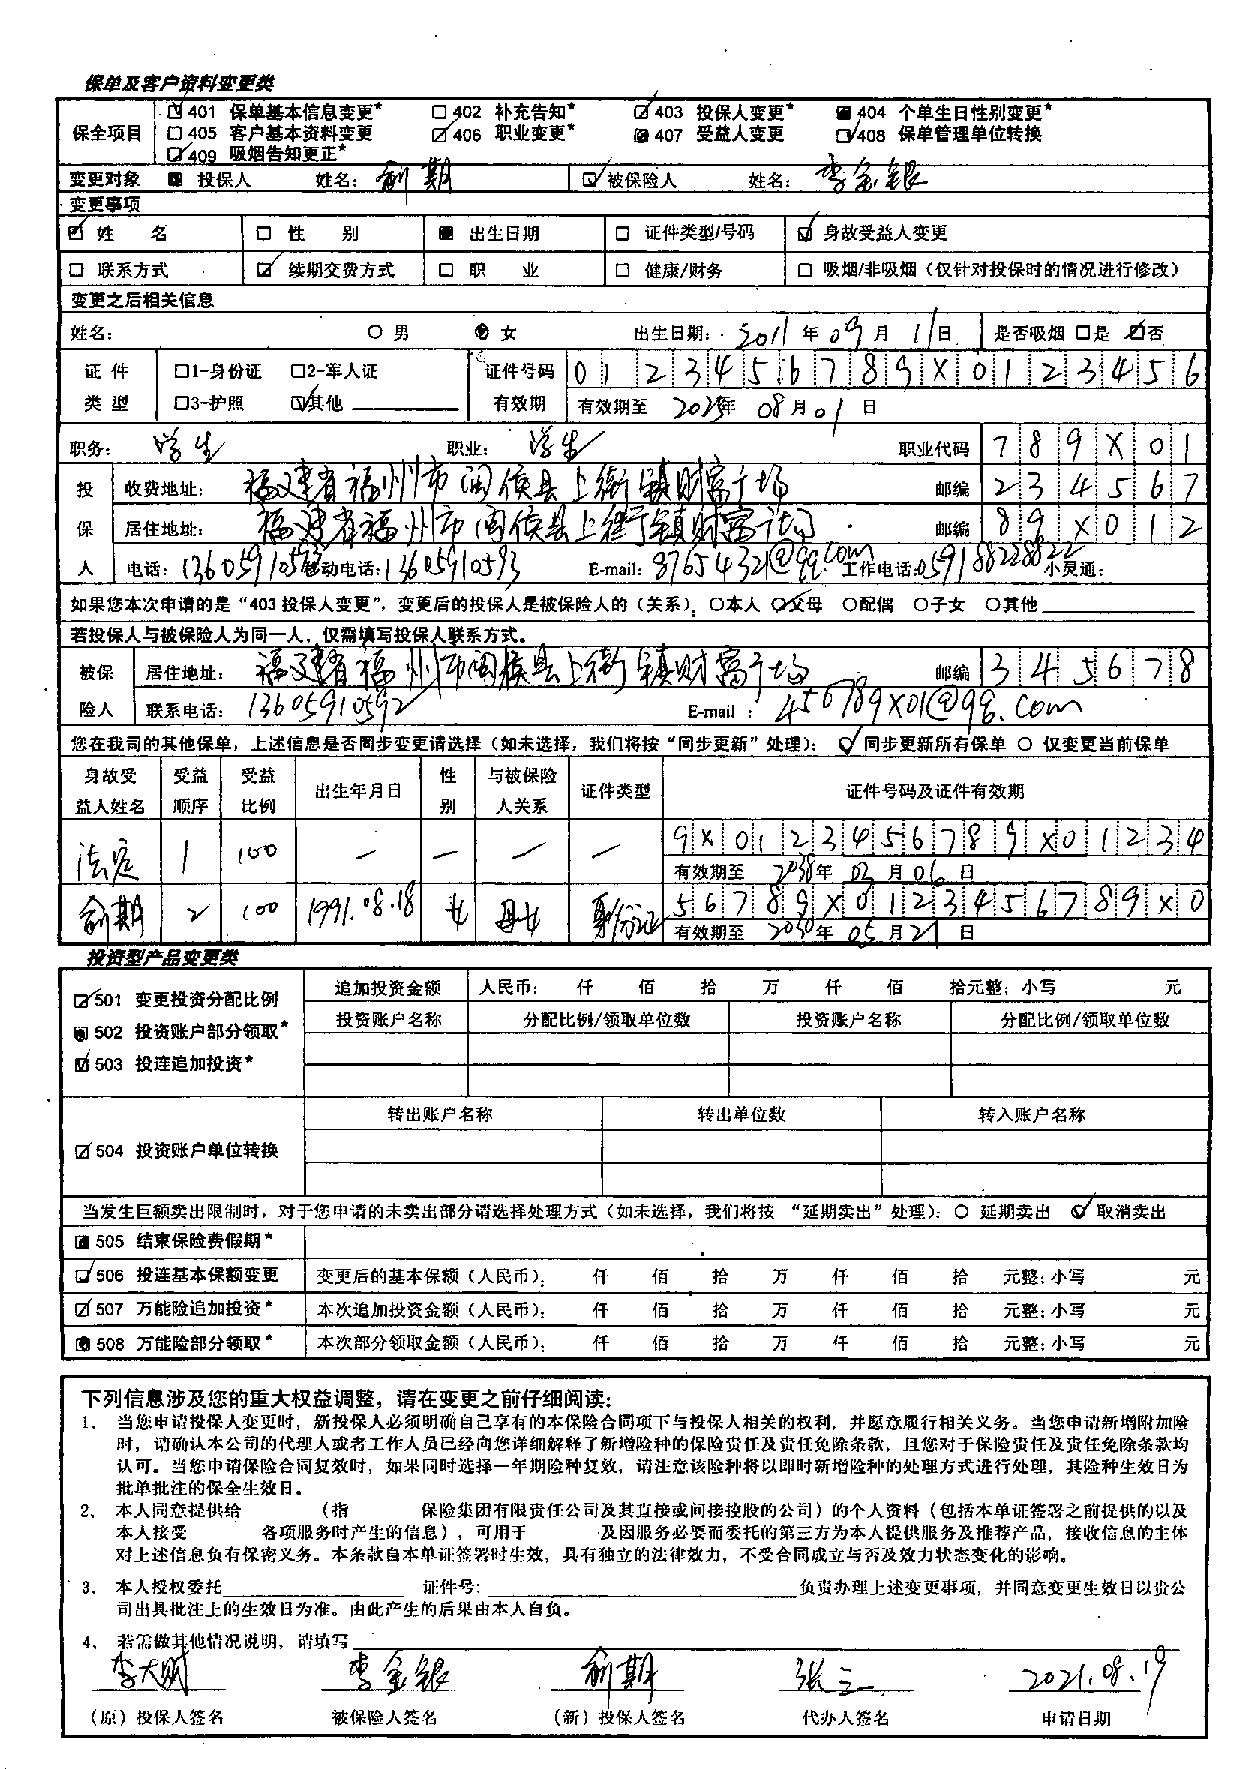 保单及客户资料变更类
保全项目
401 保单基本信息变更* 402 补充告知* 403 投保人变更* 404 个单生日性别变更*
405 客户基本资料变更 406 职业变更* 407 受益人变更 408 保单管理单位转换
409 吸烟告知更正*
变更对象 投保人 姓名: 俞期 被保险人 姓名: 李金银
变更事项
姓 名 性 别 出生日期 证件类型/号码 身故受益人变更
联系方式 续期交费方式 职 业 健康/财务 吸烟/非吸烟（仅针对投保时的情况进行修改）
变更之后相关信息
姓名: 男 女 出生日期: 2011 年 09 月 11 日 是否吸烟 是 否
证 件 类 型 1-身份证 2-军人证 证件号码 0123456789X0123456
3-护照 其他 有效期 有效期至 2025年 08月 01日
职务: 学生 职业: 学生 职业代码 789X01
投保人 收费地址: 福建省福州市闽侯县上街镇财富广场 邮编 234567
居住地址: 福建省福州市闽侯县上街镇财富广场 邮编 89X012
电话: 13605910593 移动电话: 13605910593 E-mail: 87654321@qq.com 工作电话: 059188228822 小灵通:
如果您本次申请的是“403 投保人变更”, 变更后的投保人是被保险人的（关系）: 本人 父母 配偶 子女 其他
若投保人与被保险人为同一人，仅需填写投保人联系方式。
被保险人 居住地址: 福建省福州市闽侯县上街镇财富广场 邮编 345678
联系电话: 13605910592 E-mail : 456789X01@qq.com
您在我司的其他保单，上述信息是否同步变更请选择（如未选择，我们将按“同步更新”处理）: 同步更新所有保单 仅变更当前保单
身故受益人姓名 受益顺序 受益比例 出生年月日 性别 与被保险人关系 证件类型 证件号码及证件有效期
法定 1 100 — — — — 9X0123456789X01234
有效期至 2038年 02月 06日
俞期 2 100 1991.08.18 女 母女 身份证 56789X0123456789X0
有效期至 2030年 05月 21日
投资型产品变更类
501 变更投资分配比例
502 投资账户部分领取*
503 投连追加投资*
追加投资金额 人民币: 仟 佰 拾 万 仟 佰 拾元整: 小写 元
投资账户名称 分配比例/领取单位数 投资账户名称 分配比例/领取单位数
转出账户名称 转出单位数 转入账户名称
504 投资账户单位转换
当发生巨额卖出限制时，对于您申请的未卖出部分请选择处理方式（如未选择，我们将按 “延期卖出”处理）: 延期卖出 取消卖出
505 结束保险费假期*
506 投连基本保额变更 变更后的基本保额（人民币）: 仟 佰 拾 万 仟 佰 拾 元整: 小写 元
507 万能险追加投资* 本次追加投资金额（人民币）: 仟 佰 拾 万 仟 佰 拾 元整: 小写 元
508 万能险部分领取* 本次部分领取金额（人民币）: 仟 佰 拾 万 仟 佰 拾 元整: 小写 元
下列信息涉及您的重大权益调整，请在变更之前仔细阅读:
1、 当您申请投保人变更时，新投保人必须明确自己享有的本保险合同项下与投保人相关的权利，并愿意履行相关义务。当您申请新增附加险
时，请确认本公司的代理人或者工作人员已经向您详细解释了新增险种的保险责任及责任免除条款，且您对于保险责任及责任免除条款均
认可。当您申请保险合同复效时，如果同时选择一年期险种复效，请注意该险种将以即时新增险种的处理方式进行处理，其险种生效日为
批单批注的保全生效日。
2、 本人同意提供给 （指 保险集团有限责任公司及其直接或间接控股的公司）的个人资料（包括本单证签署之前提供的以及
本人接受 各项服务时产生的信息），可用于 及因服务必要而委托的第三方为本人提供服务及推荐产品，接收信息的主体
对上述信息负有保密义务。本条款自本单证签署时生效，具有独立的法律效力，不受合同成立与否及效力状态变化的影响。
3、 本人授权委托 证件号: 负责办理上述变更事项，并同意变更生效日以贵公
司出具批注上的生效日为准。由此产生的后果由本人自负。
4、 若需做其他情况说明，请填写
李大财 李金银 俞期 张三 2021.08.19
（原）投保人签名 被保险人签名 （新）投保人签名 代办人签名 申请日期